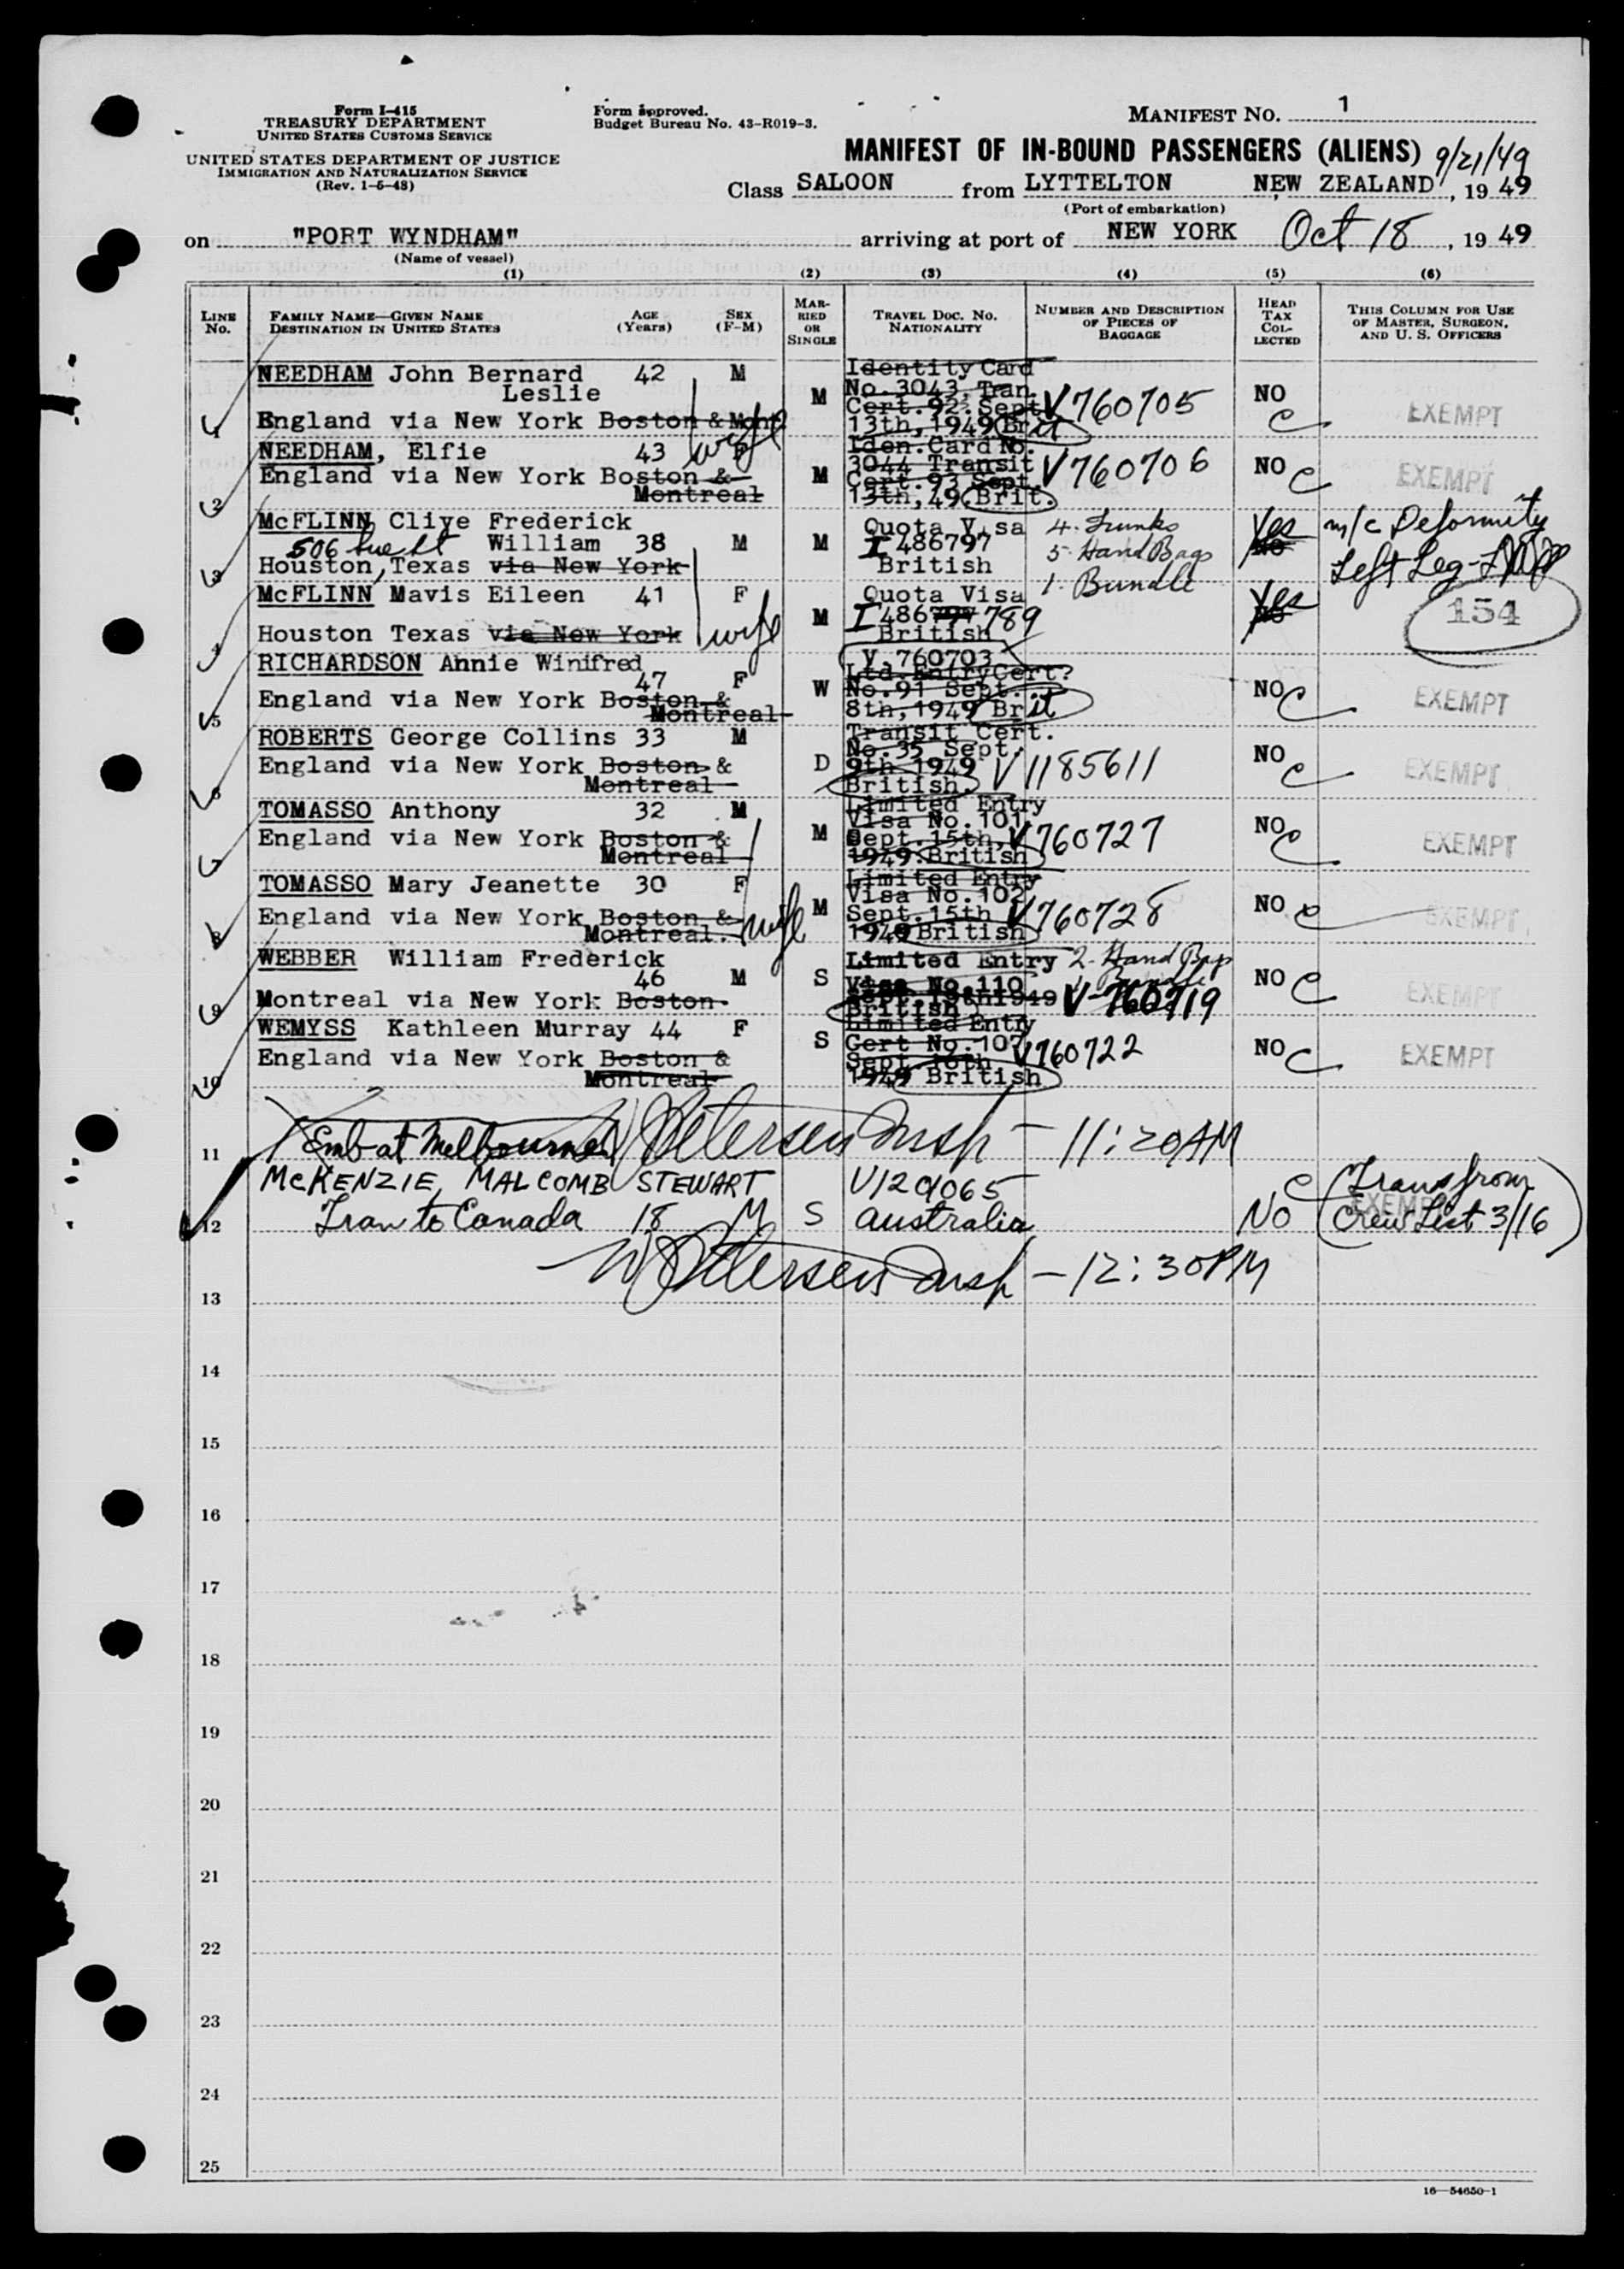 Form I-415
TREASURY DEPARTMENT
UNITED STATES CUSTOMS SERVICE
UNITED STATES DEPARTMENT OF JUSTICE
IMMIGRATION AND NATURALIZATION SERVICE
(Rev. 1-5-48)
Form approved.
Budget Bureau No. 43-R019-3.
MANIFEST No. 1
MANIFEST OF IN-BOUND PASSENGERS (ALIENS) 9/21/49
Class SALOON from LYTTELTON NEW ZEALAND, 19 49
(Port of embarkation)
on "PORT WYNDHAM" arriving at port of NEW YORK Oct 18, 19 49
(Name of vessel)
(1) (2) (3) (4) (5) (6)
LINE No.
FAMILY NAME—GIVEN NAME
DESTINATION IN UNITED STATES
AGE (Years)
SEX (F-M)
MARRIED OR SINGLE
TRAVEL DOC. No.
NATIONALITY
NUMBER AND DESCRIPTION OF PIECES OF BAGGAGE
HEAD TAX COLLECTED
THIS COLUMN FOR USE OF MASTER, SURGEON, AND U. S. OFFICERS
NEEDHAM John Bernard 42 M
Leslie
1 England via New York Boston & Mont
M
Identity Card
No. 3043, Tran.
Cert. 92. Sept
13th, 1949 Brit
V760705
NO C EXEMPT
NEEDHAM, Elfie 43 wife
2 England via New York Boston &
Montreal
M
Iden. Card No.
3044 Transit
Cert. 93 Sept.
13th, 49 Brit.
V760706
NO C EXEMPT
McFLINN Clive Frederick
506 William 38 M M
3 Houston, Texas via New York
Quota Visa
I 486797
British
4. Trunks
5 Hand Bags
1. Bundle
Yes no
m/c Deformity
Left Leg
McFLINN Mavis Eileen 41 F
4 Houston Texas via New York wife
M
Quota Visa
I 486797 789
British
Yes no
154
RICHARDSON Annie Winifred
47 F
5 England via New York Boston &
Montreal
W
V. 760703
Ltd. Entry Cert?
No. 91 Sept.
8th, 1949 Brit
NO C EXEMPT
ROBERTS George Collins 33 M
6 England via New York Boston &
Montreal
D
Transit Cert.
No. 35 Sept.
9th 1949 V1185611
British.
NO C EXEMPT
TOMASSO Anthony 32 M
7 England via New York Boston &
Montreal
M
Limited Entry
Visa No. 101
Sept. 15th, V760727
1949. British
NO C EXEMPT
TOMASSO Mary Jeanette 30 F
8 England via New York Boston &
Montreal. wife
M
Limited Entry
Visa No. 102
Sept. 15th V760728
1949 British
NO C EXEMPT
WEBBER William Frederick
46 M S
9 Montreal via New York Boston.
Limited Entry
Visa No. 110
Sept. 19th 1949
British
2. Hand Bags
V-760719
NO C EXEMPT
WEMYSS Kathleen Murray 44 F
10 England via New York Boston &
Montreal
S
Limited Entry
Cert No. 107
Sept. 16th V760722
1949 British
NO C EXEMPT
11 Emb at Melbourne W Petersen Insp - 11:20 AM
McKENZIE, MALCOMB STEWART V129065 C Trans from
12 Tran to Canada 18 M S Australia NO EXEMPT Crew List 3/16
W Petersen Insp - 12:30 PM
13
14
15
16
17
18
19
20
21
22
23
24
25
16—54650-1